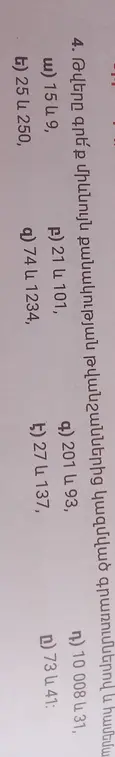 4. Թվերը գրե՛ք միևնույն քանակության թվանշաններից կազմված գրառումներով և
ա) 15 և 9, բ) 21 և 101, գ) 201 և 93, դ) 10 008 և 31,
ե) 25 և 250, զ) 74 և 1234, է) 27 և 137, ը) 73 և 41: